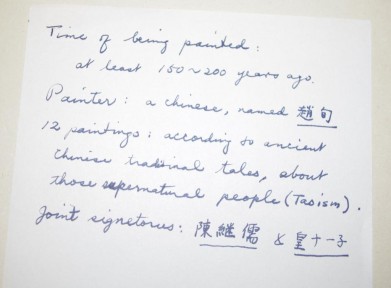 Time of being painted:
at least 150~200 years ago.
Painter: a chinese, named 趙旬
12 paintings: according to ancient
chinese tradinal tales, about
those supernatural people (Taoism).
Joint signetorus: 陳繼儒 & 皇十一子